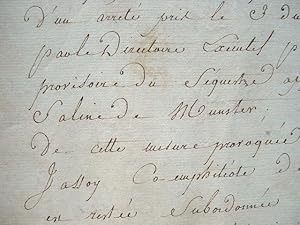 d'un arrêté pris le 3 du
par le Directoire Exécutif
provisoire du Séquestre
Saline de Munster;
De cette mesure provoquée
Jassoy Co-emphitéote de
en restée Subordonnée